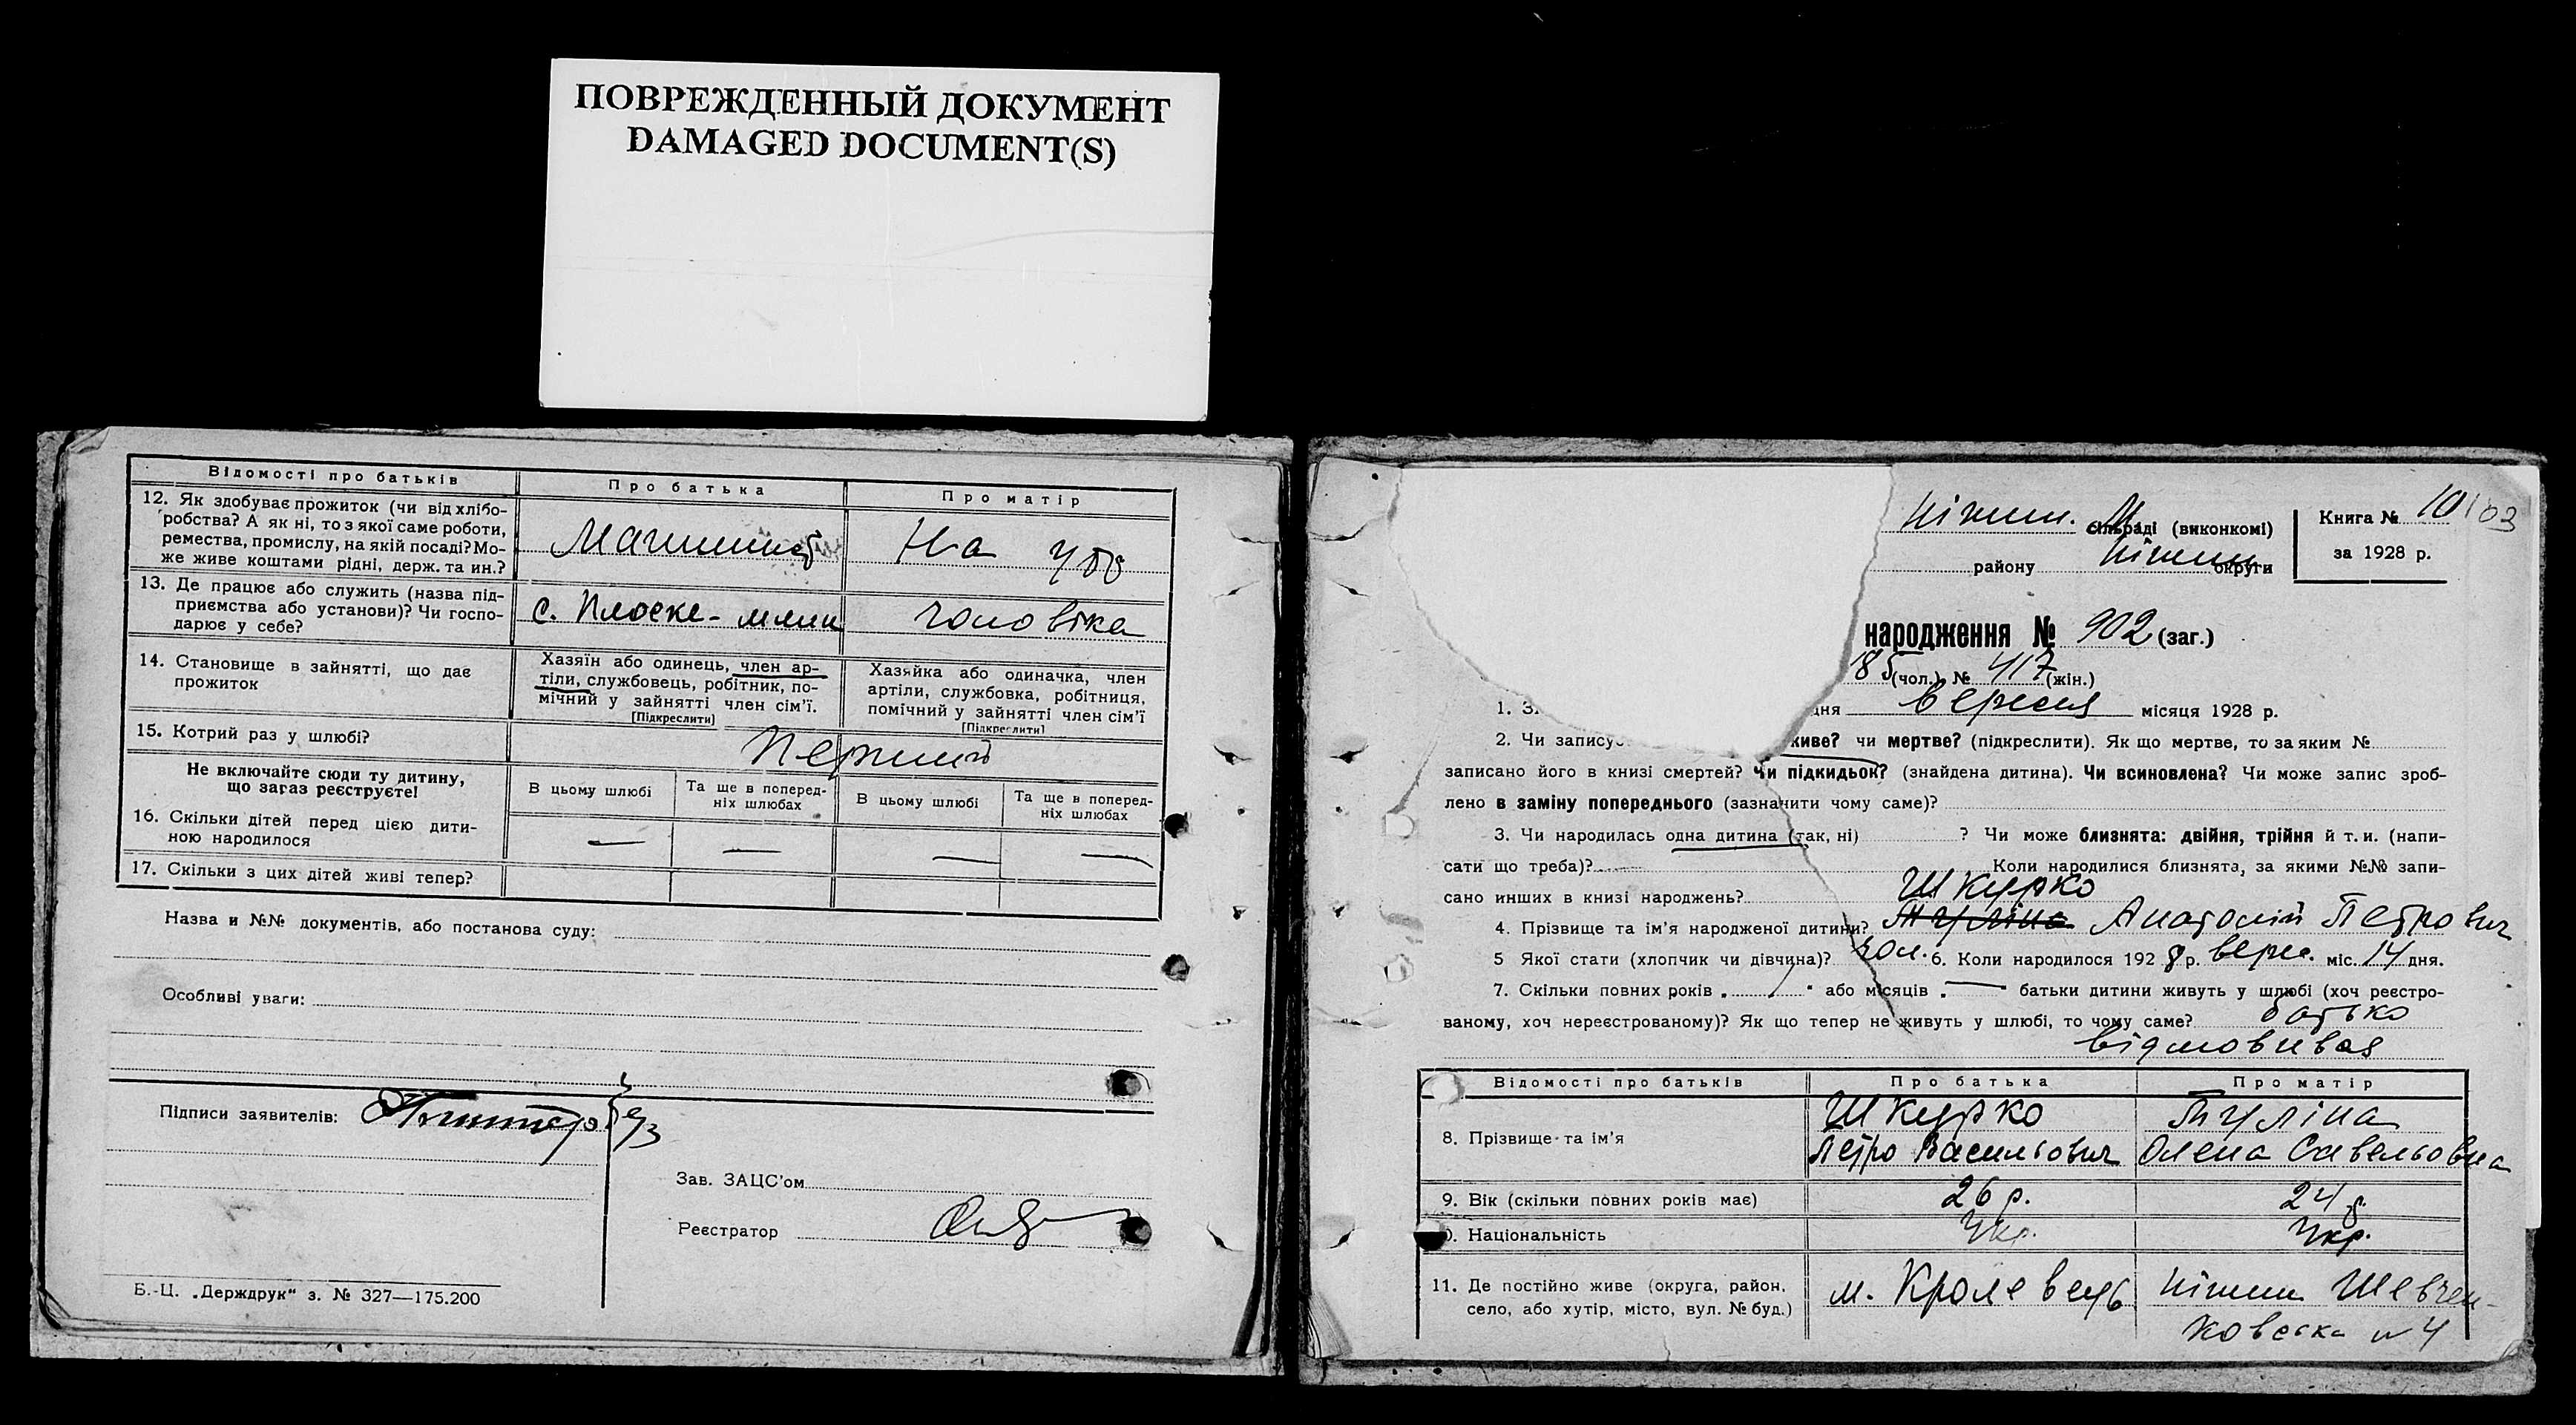 ПОВРЕЖДЕННЫЙ ДОКУМЕНТ
DAMAGED DOCUMENT(S)
Відомості про батьків
Про батька
Про матір
12. Як здобуває прожиток (чи від хлібо-
робства? А як ні, то з якої саме роботи,
ремества, промислу, на якій посаді? Мо-
же живе коштами рідні, держ. та ин.?
На утр
13. Де працює або служить (назва під-
приємства або установи)? Чи госпо-
дарює у себе?
с. Плоске - млин
чоловіка
14. Становище в зайнятті, що дає
прожиток
Хазяїн або одинець, член ар-
тіли, службовець, робітник, по-
мічний у зайнятті член сім'ї.
[Підкреслити]
Хазяйка або одиначка, член
артіли, службовка, робітниця,
помічний у зайнятті член сім'ї
[Підкреслити]
15. Котрий раз у шлюбі?
Перший
Не включайте сюди ту дитину,
що загаз реєструєте!
В цьому шлюбі
Та ще в поперед-
ніх шлюбах
В цьому шлюбі
Та ще в поперед-
ніх шлюбах
16. Скільки дітей перед цією дити-
ною народилося
— — — —
17. Скільки з цих дітей живі тепер?
Назва и №№ документів, або постанова суду:
Особливі уваги:
Підписи заявителів:
Зав. ЗАЦС'ом
Реєстратор
Б.-Ц. „Держдрук" з. № 327—175.200
Ніжин. М. сільраді (виконкомі)
району Ніжин округи
Книга № 10
103
за 1928 р.
народження № 902 (заг.)
185 (чол.) № 417 (жін.)
1. З
дня вересня місяця 1928 р.
2. Чи запису
живе? чи мертве? (підкреслити). Як що мертве, то за яким №
записано його в книзі смертей? Чи підкидьок? (знайдена дитина). Чи всиновлена? Чи може запис зроб-
лено в заміну попереднього (зазначити чому саме)?
3. Чи народилась одна дитина (так, ні) ? Чи може близнята: двійня, трійня й т. и. (напи-
сати що треба)? Коли народилися близнята, за якими №№ запи-
сано инших в книзі народжень?
Шкурко
4. Прізвище та ім'я народженої дитини? Туліна Анатолій Петрович
5 Якої стати (хлопчик чи дівчина)? чол. 6. Коли народилося 1928 р. верес. міс. 14 дня.
7. Скільки повних років „ / " або місяців „ — " батьки дитини живуть у шлюбі (хоч реєстро-
ваному, хоч нереєстрованому)? Як що тепер не живуть у шлюбі, то чому саме? батько
відмовився
Відомості про батьків
Про батька
Про матір
8. Прізвище та ім'я
Шкурко
Петро Васильович
Туліна
Олена Савельовна
9. Вік (скільки повних років має)
26 р.
24 р.
10. Національність
Укр.
Укр.
11. Де постійно живе (округа, район,
село, або хутір, місто, вул. № буд.)
м. Кролевець
Ніжин Шевчен-
ковська № 4